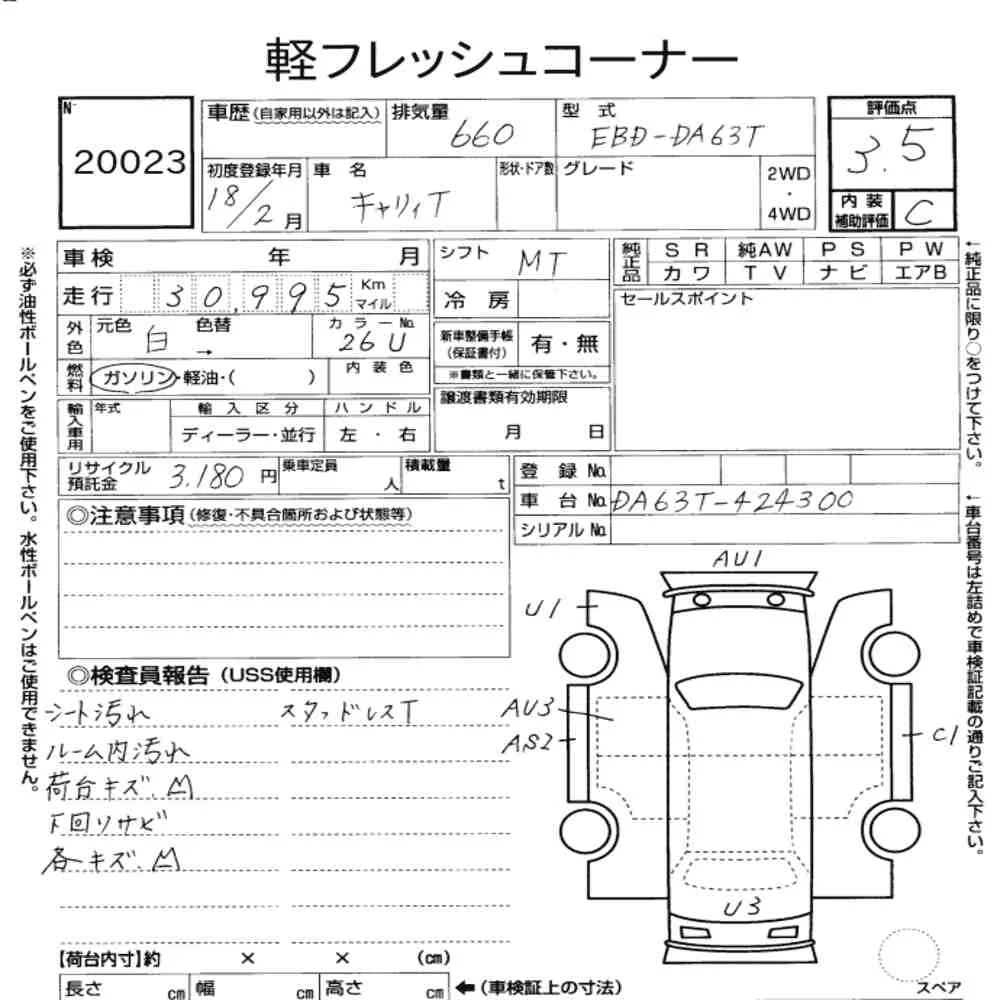 軽フレッシュコーナー
N-
20023
車歴(自家用以外は記入)
排気量
660
型 式
EBD-DA63T
評価点
3.5
初度登録年月
18/2月
車 名
キャリィT
形状・ドア数
グレード
2WD
・
4WD
内 装
補助評価
C
車検 年 月
シフト
MT
純正品
SR 純AW PS PW
カワ TV ナビ エアB
走行
30,995
Km
マイル
冷 房
セールスポイント
外色
元色
白
色替
→
カラーNo.
26U
新車整備手帳
(保証書付)
有・無
※書類と一緒に保管下さい。
燃料
ガソリン・軽油・( )
内装色
譲渡書類有効期限
月 日
輸入車用
年式
輸入区分
ハンドル
ディーラー・並行
左・右
リサイクル
預託金
3.180 円
乗車定員
人
積載量
t
登 録 No.
車 台 No.
DA63T-424300
シリアル No.
◎注意事項(修復・不具合箇所および状態等)
◎検査員報告(USS使用欄)
シート汚れ
スタッドレスT
ルーム内汚れ
荷台キズ、凹
下回りサビ
各キズ、凹
AU1
U1
AU3
AS2
C1
U3
【荷台内寸】約 × × (cm)
長さ cm
幅 cm
高さ cm
←(車検証上の寸法)
スペア
※必ず油性ボールペンをご使用下さい。水性ボールペンはご使用できません。
←純正品に限り○をつけて下さい。
←車台番号は左詰めで車検証記載の通りご記入下さい。